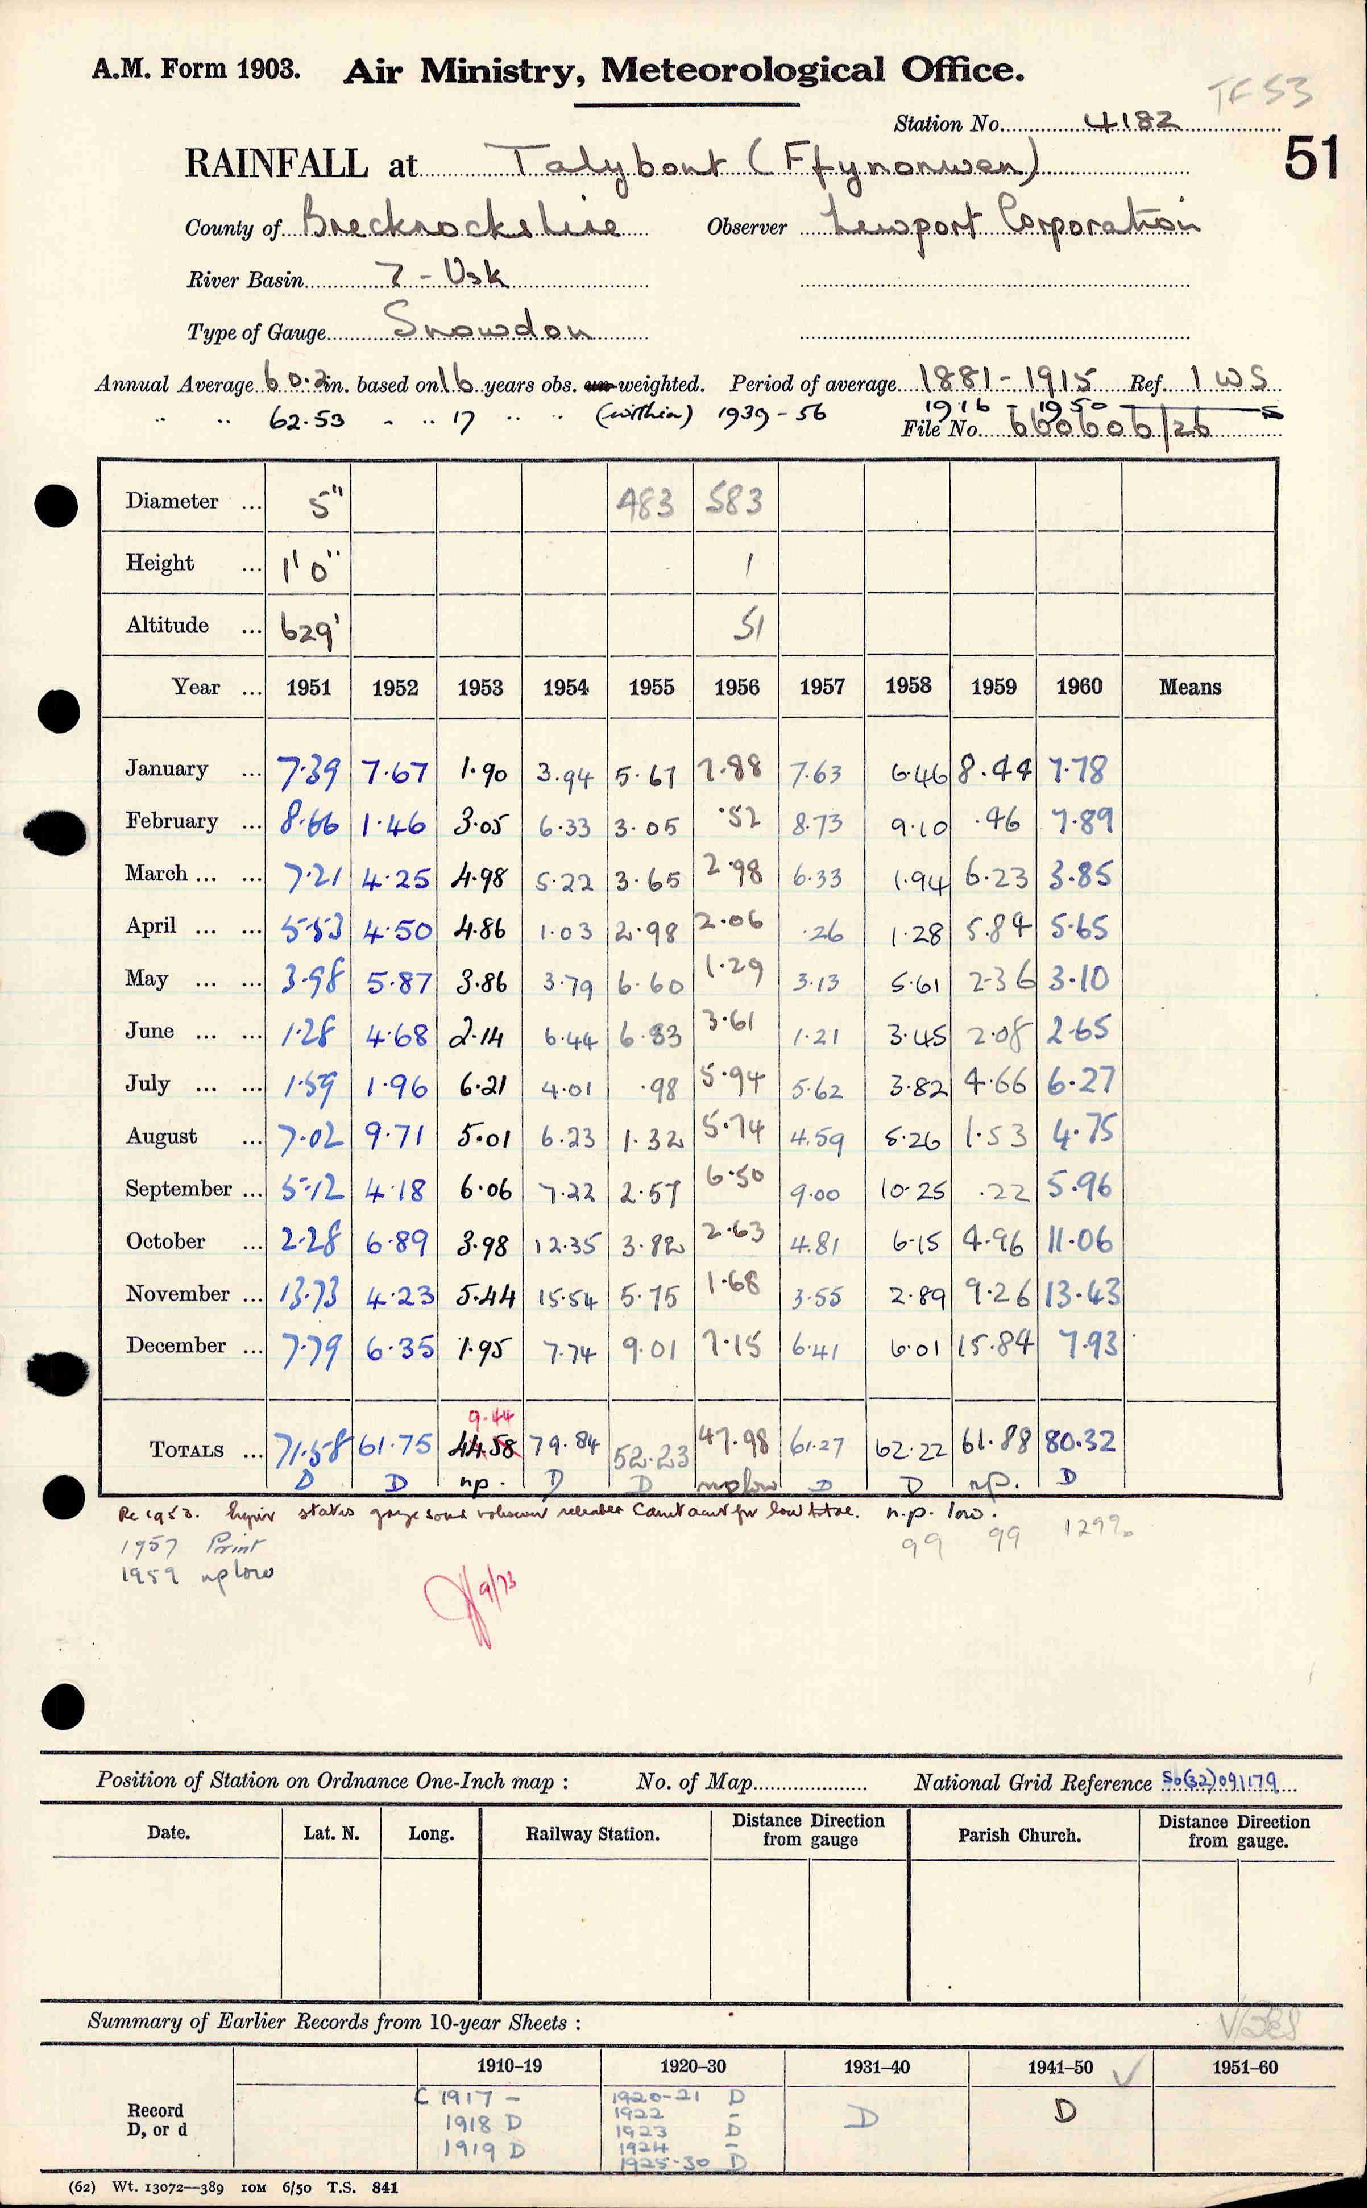 A.M. Form 1903. Air Ministry, Meteorological Office.
TF 53
Station No. 4182
51
RAINFALL at Talybont (Ffynonwen)
County of Brecknockshire Observer Newport Corporation
River Basin 7 - Usk
Type of Gauge Snowdon
Annual Average 60.2 in. based on 16 years obs. un-weighted. Period of average 1881-1915 Ref. 1 WS
" " 62.53 " " 17 " " (within) 1939-56 1916 - 1950
File No. 660606/26
Diameter ... 5" 483 583
Height ... 1' 0" 1
Altitude ... 629' 51
Year ... 1951 1952 1953 1954 1955 1956 1957 1958 1959 1960 Means
January ... 7.39 7.67 1.90 3.94 5.67 7.88 7.63 6.46 8.44 7.78
February ... 8.66 1.46 3.05 6.33 3.05 .52 8.73 9.10 .46 7.89
March ... ... 7.21 4.25 4.98 5.22 3.65 2.98 6.33 1.94 6.23 3.85
April ... ... 5.53 4.50 4.86 1.03 2.98 2.06 .26 1.28 5.84 5.65
May ... ... 3.98 5.87 3.86 3.79 6.60 1.29 3.13 5.61 2.36 3.10
June ... ... 1.28 4.68 2.14 6.44 6.83 3.61 1.21 3.45 2.08 2.65
July ... ... 1.59 1.96 6.21 4.01 .98 5.94 5.62 3.82 4.66 6.27
August ... 7.02 9.71 5.01 6.23 1.32 5.74 4.59 5.26 1.53 4.75
September ... 5.12 4.18 6.06 7.22 2.57 6.50 9.00 10.25 .22 5.96
October ... 2.28 6.89 3.98 12.35 3.82 2.63 4.81 6.15 4.96 11.06
November ... 13.73 4.23 5.44 15.54 5.75 1.68 3.55 2.89 9.26 13.43
December ... 7.79 6.35 1.95 7.74 9.01 7.15 6.41 6.01 15.84 7.93
9.44
TOTALS ... 71.58 61.75 44.58 79.84 52.23 47.98 61.27 62.22 61.88 80.32
D D np. D D np low D D np. D
Re 1953. states gauge some reliable Cant for low total. n.p. low.
99 99 129%
1957 Print
1959 np low
9/73
Position of Station on Ordnance One-Inch map : No. of Map National Grid Reference SO(32)091179
Date. Lat. N. Long. Railway Station. Distance from gauge Direction Parish Church. Distance from gauge. Direction
Summary of Earlier Records from 10-year Sheets :
1910-19 1920-30 1931-40 1941-50 1951-60
Record D, or d
C 1917 - 1920-21 D D D
1918 D 1922 -
1919 D 1923 D
1924 -
1925-30 D
(62) Wt. 13072—389 IOM 6/50 T.S. 841